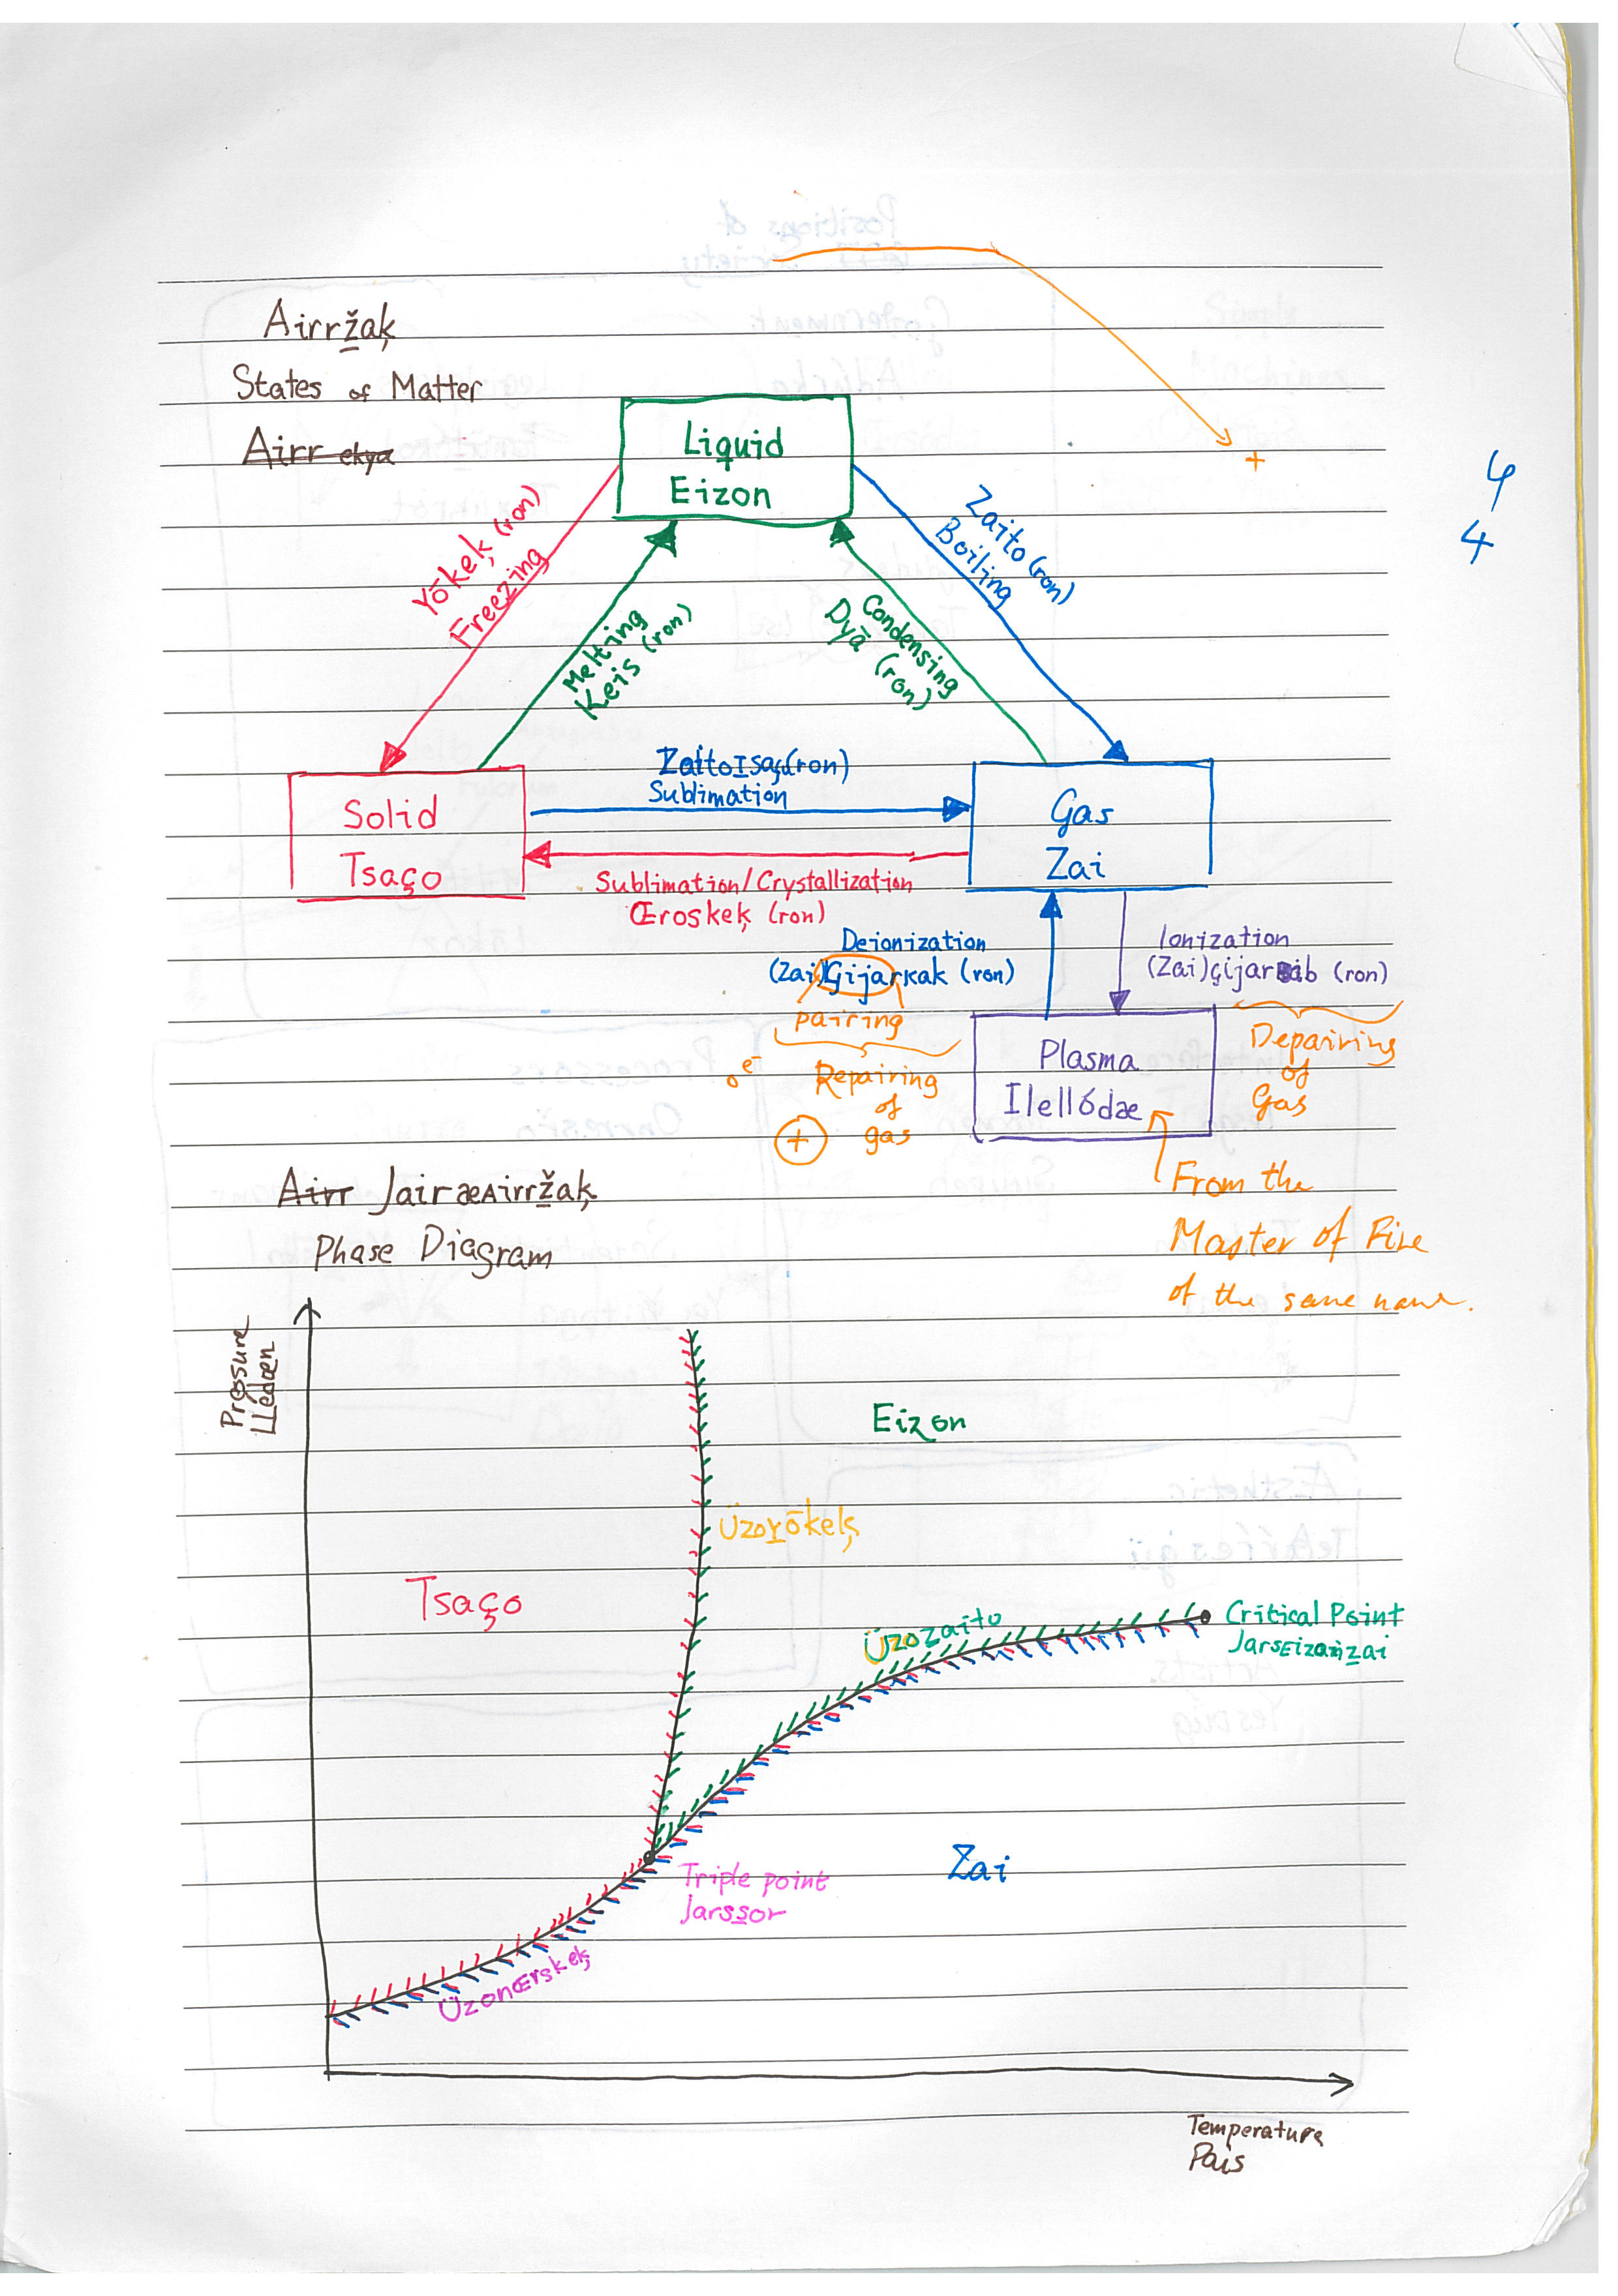 Airržaķ
States of Matter
Airr ekya
Liquid
Eizon
Yōkeķ (ron)
Freezing
Melting
Keis (ron)
Condensing
Dyā (ron)
Zaito (ron)
Boiling
4
4
Solid
Tsaço
(ron)
Sublimation
Sublimation/Crystallization
Œroskeķ (ron)
Gas
Zai
Deionization
(Zai)Çijarkak (ron)
Ionization
(Zai)çijar (ron)
pairing
Repairing
of
gas
e⁻
+
+
Plasma
Ilellódae
Depairing
of
Gas
From the
Master of Fire
of the same name.
Airr JairæAirržaķ
Phase Diagram
Pressure
LLedæn
Eizon
Üzoyōkeķ
Tsaço
Üzozaito
Critical Point
JarsEizanzai
Zai
Triple point
Jarssor
Üzonœrskeķ
Temperature
Pais